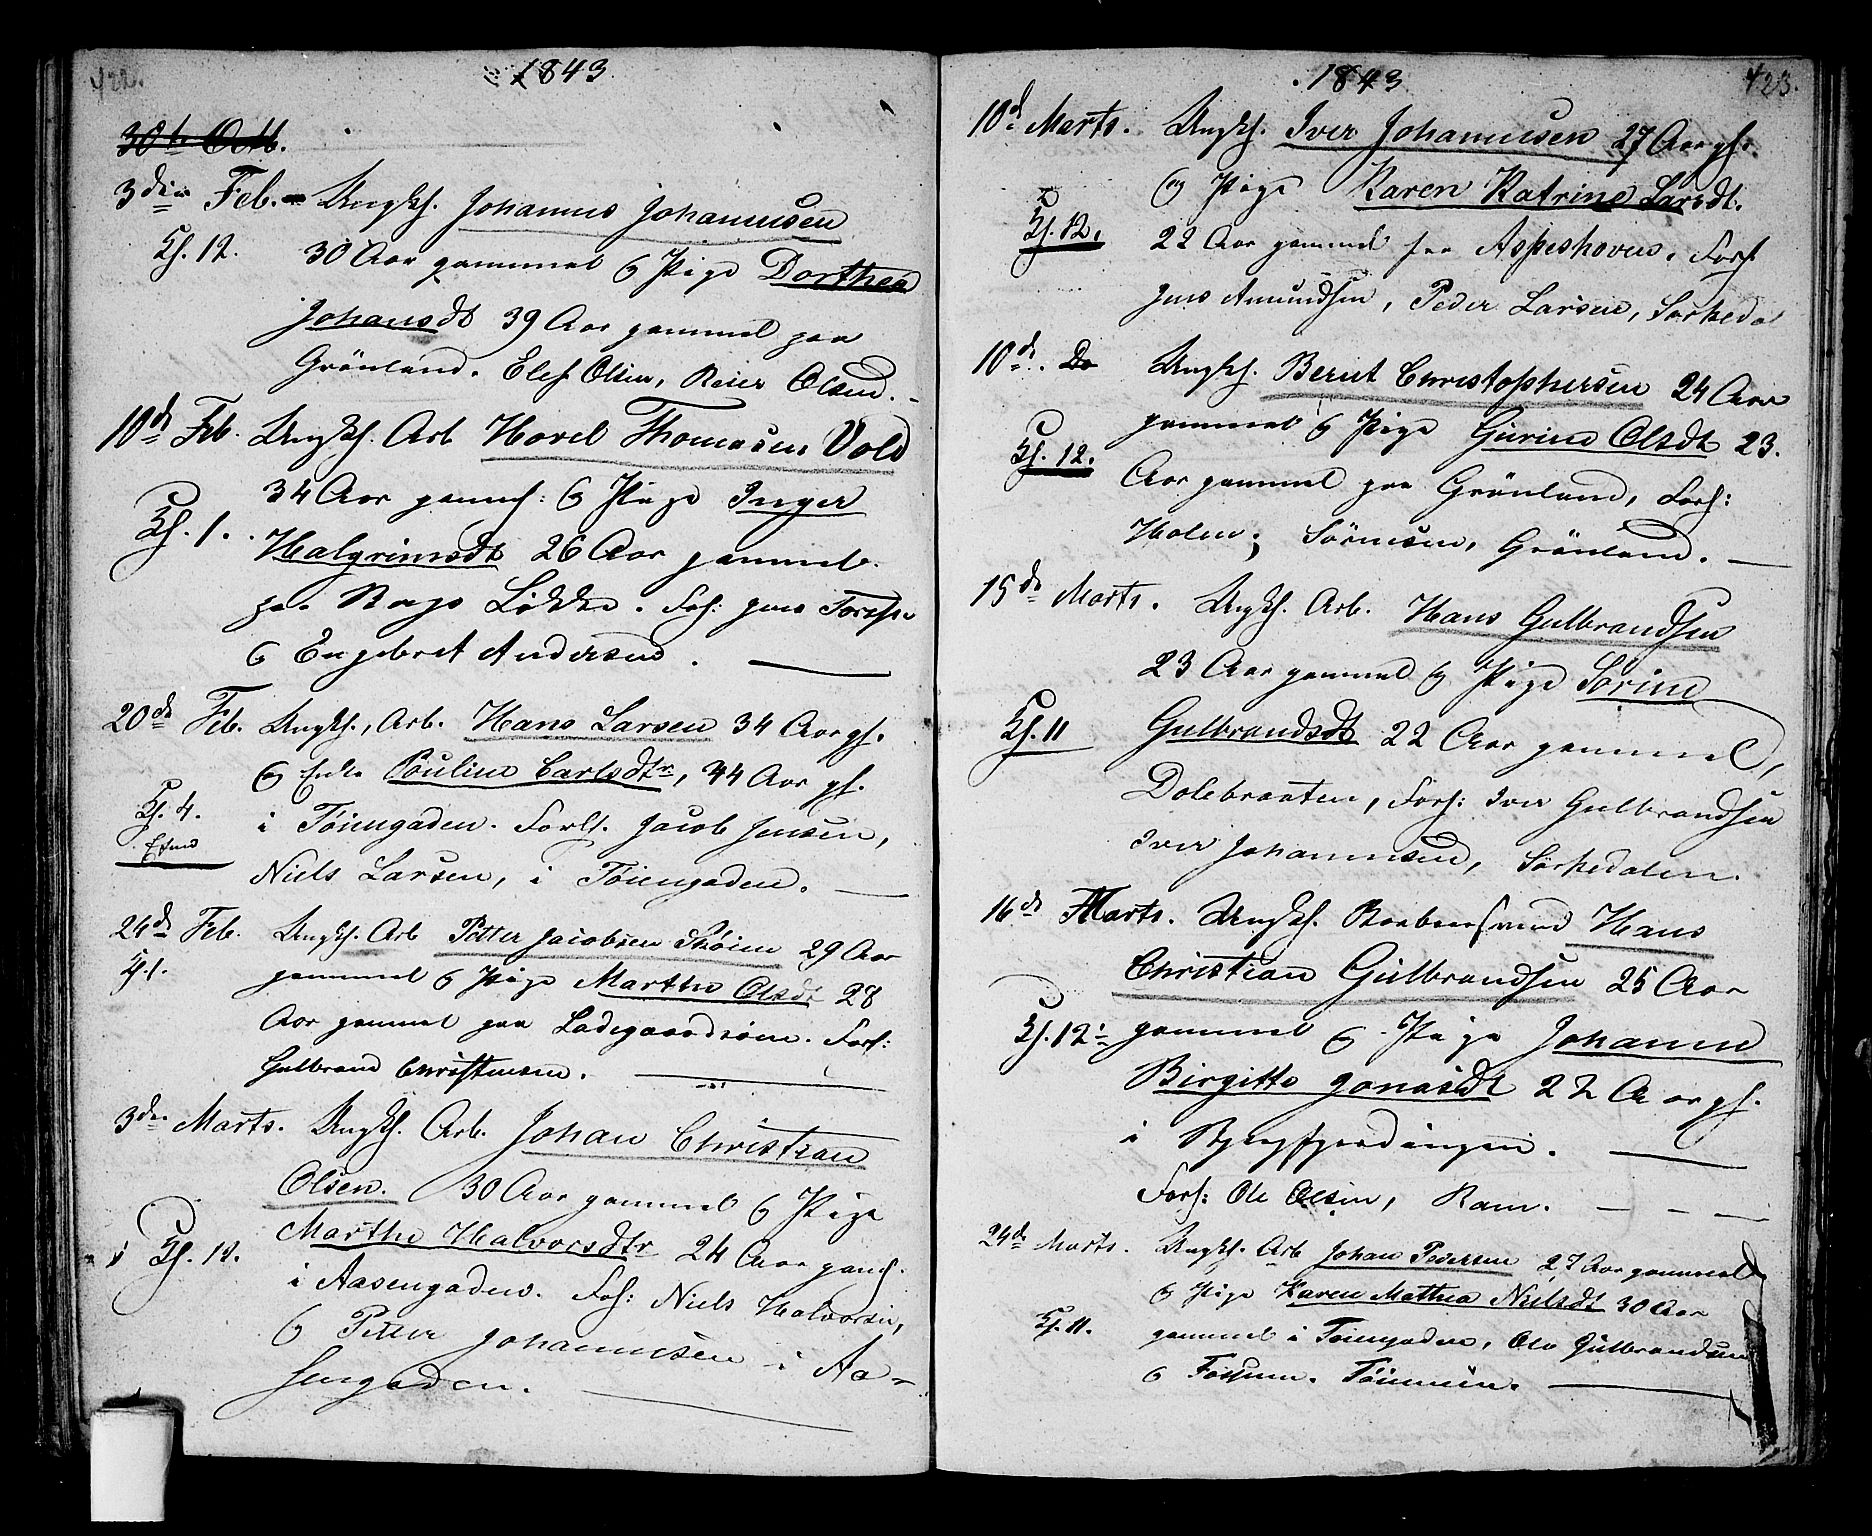 422.
1843
30te Octb.
3die Feb. Ungkh. Johannes Johannesen
Kh. 12. 30 Aar gammel & Pige Dorthea
Johansdt 39 Aar gammel paa
Grönland. Elef Olsen, Reier Olsen.
10de Feb. Ungkh. Arb Hovel Thomesen Vold
34 Aar gamh: & Pige Inger
Kh. 1. Halgrimsdt 26 Aar gammel
paa Løkke. Forl: Jens
& Engebret Andersen.
20de Feb. Ungkh., Arb. Hans Larsen 34 Aar gl.
& Enke Pouline Carlsdtr, 44 Aar gl.
Kh. 4. i Töiengaden. Forl. Jacob Jensen,
Niels Larsen, i Töiengaden.
24de Feb. Ungkh. Arb Petter Jacobsen Sköien 29 Aar
Kh. 1. gammel & Pige Marthe Olsdr 28
Aar gammel paa Ladegaardsöen. Forl:
Gulbrand Christensen.
3die Marts. Ungkh. Arb. Johan Christian
Olsen. 30 Aar gammel & Pige
Marthe Halvorsdtr 24 Aar gamh.
Kh. 12. i Aasengaden. Forl: Niels Halvorsen,
& Petter Johannesen i Aa-
sengaden.
1843
423.
10de Marts. Ungkh. Iver Johannesen 27 Aar gl.
& Pige Karen Katrine Larsdt.
Kh. 12. 22 Aar gammel fra Aspeshoven. Forl
Jens Amundsen, Peder Larsen, Sörkedal
10de Do Ungkh. Bernt Christophersen 24 Aar
gammel & Pige Gurine Olsdt 23.
Kh. 12. Aar gammel paa Grönland, Forl:
Holen, Sörensen, Grönland.
15de Marts. Ungkh. Arb. Hans Gulbrandsen
23 Aar gammel & Pige Sörine
Kh. 11 Gulbrandsdt 22 Aar gammel,
Dolebraaten, Forl: Iver Gulbrandsen
Iver Johannesen, Sörkedalen.
16de Marts. Ungkh. Hans
Christian Gulbrandsen 25 Aar
Kh. 12 gammel & Pige Johanne
Birgitte Jonasdt 22 Aar gl.
i Bjergfjerdingen.
Forl: Ole Olsen, Ram.
24de Marts. Ungkh. Arb Johan Pedersen 27 Aar gammel
& Pige Karen Mathea Nielsdt 30 Aar
Kh. 11. gammel i Töiengaden, Ole Gulbrandsen
& Fossum. Töiengaden.